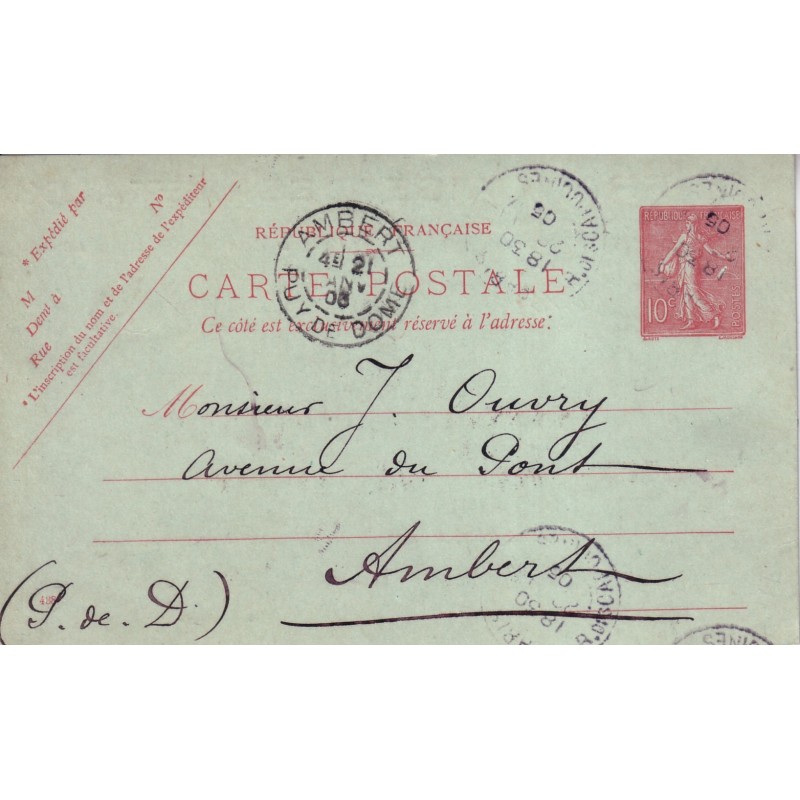 * Expédié par
Nº
M
Demt à
Rue
* L'inscription du nom et de l'adresse de l'expéditeur
est facultative.
RÉPUBLIQUE FRANÇAISE
CARTE POSTALE
Ce côté est exclusivement réservé à l'adresse:
AMBERT
21
PUY DE DOME
18 30
05
RÉPUBLIQUE FRANÇAISE
10c
POSTES
Monsieur J. Ouvry
Avenue du Pont
Ambert
(P. de D.)
18 30
05